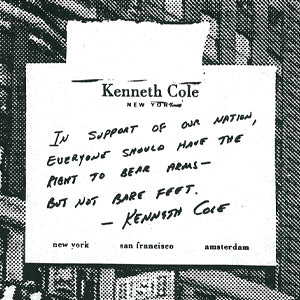 Kenneth Cole
NEW YORK
IN SUPPORT OF OUR NATION,
EVERYONE SHOULD HAVE THE
RIGHT TO BEAR ARMS—
BUT NOT BARE FEET.
— KENNETH COLE
new york san francisco amsterdam